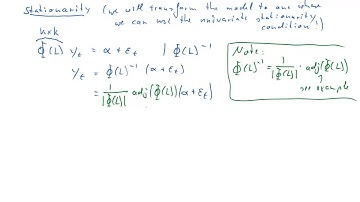 Stationarity (we will transform the model to one where
we can use the univariate stationarity
condition!)
kxk
Φ(L) yₜ = α + εₜ | Φ(L)⁻¹
yₜ = Φ(L)⁻¹ (α + εₜ)
= 1/|Φ(L)| adj(Φ(L))(α + εₜ)
Note:
Φ(L)⁻¹ = 1/|Φ(L)| · adj(Φ(L))
↑
see example